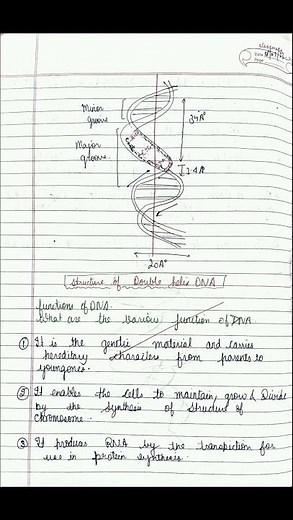 classmate
Date
Page
Minor
groove
34A°
Major
groove
3.4A°
20A°
Structure of Double helix DNA
functions of DNA.
What are the function of DNA
① It is the genetic material and carries
hereditary characters from parents to
youngones.
② It enables the cells to maintain, grow & Divide
by the synthesis of structure of
chromosome.
③ It produces RNA by the for
use in protein synthesis.